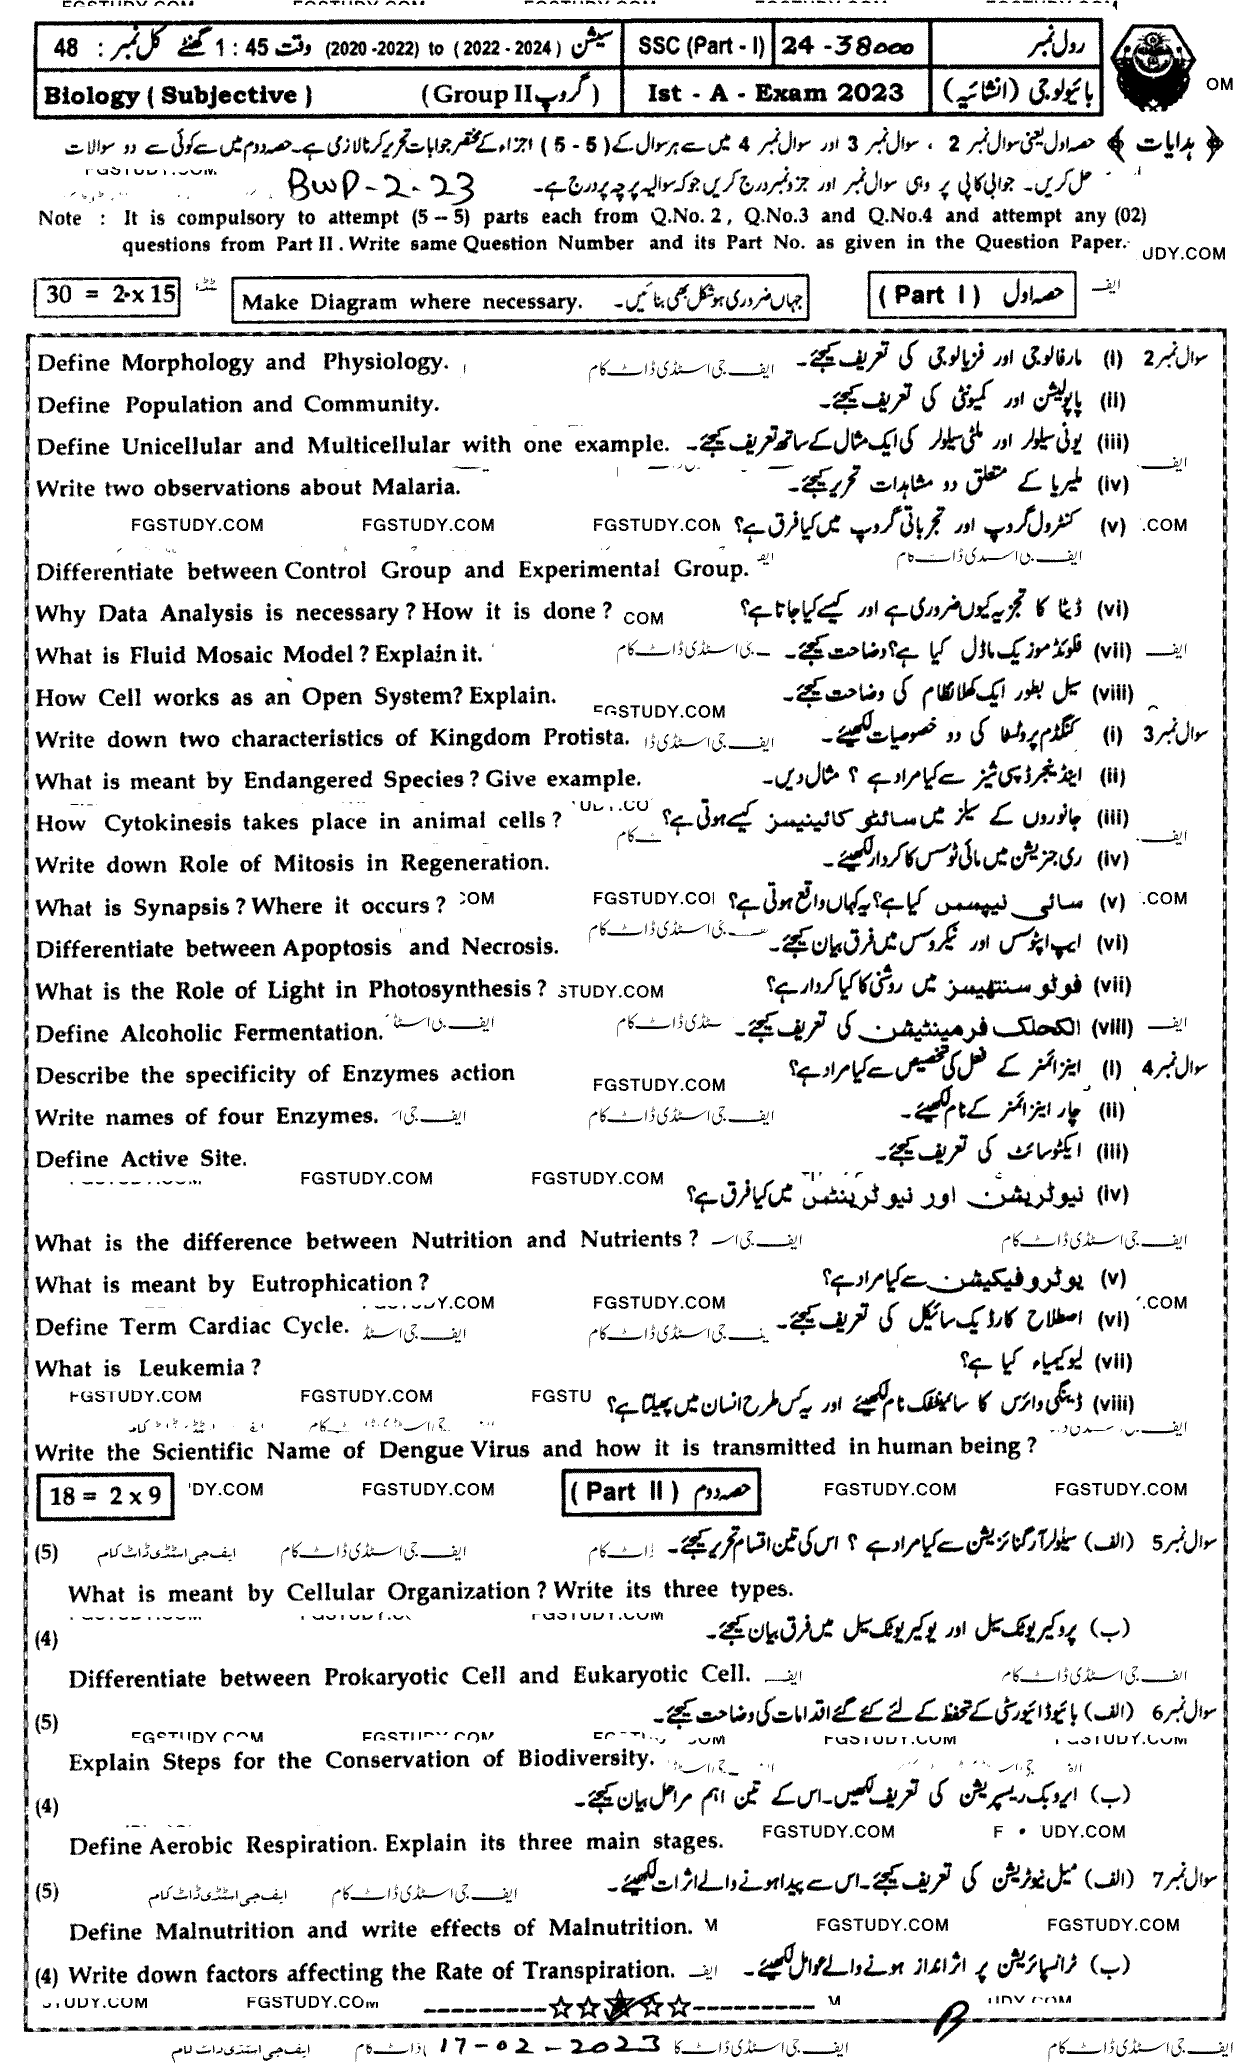 48 : کل نمبر وقت 1 : 45 گھنٹے سیشن (2020 -2022) to (2022 - 2024) SSC (Part - I) 24 -38000 رول نمبر
Biology ( Subjective ) (Group II گروپ) Ist - A - Exam 2023 بائیولوجی (انشائیہ)
﴿ ہدایات ﴾ حصہ اول یعنی سوال نمبر 2 ، سوال نمبر 3 اور سوال نمبر 4 میں سے ہر سوال کے ( 5 - 5 ) اجزاء کے مختصر جوابات تحریر کرنا لازمی ہے۔ حصہ دوم میں سے کوئی سے دو سوالات
حل کریں۔ جوابی کاپی پر وہی سوال نمبر اور جزو نمبر درج کریں جو کہ سوالیہ پرچہ پر درج ہے۔ BWP-2-23
Note : It is compulsory to attempt (5 – 5) parts each from Q.No. 2 , Q.No.3 and Q.No.4 and attempt any (02)
questions from Part II . Write same Question Number and its Part No. as given in the Question Paper.
30 = 2 x 15 Make Diagram where necessary. جہاں ضروری ہو شکل بھی بنائیں۔ ( Part I ) حصہ اول
Define Morphology and Physiology. سوال نمبر 2 (i) مارفالوجی اور فزیالوجی کی تعریف کیجئے۔
Define Population and Community. (ii) پاپولیشن اور کمیونٹی کی تعریف کیجئے۔
Define Unicellular and Multicellular with one example. (iii) یونی سیلولر اور ملٹی سیلولر کی ایک مثال کے ساتھ تعریف کیجئے۔
Write two observations about Malaria. (iv) ملیریا کے متعلق دو مشاہدات تحریر کیجئے۔
FGSTUDY.COM FGSTUDY.COM (v) کنٹرول گروپ اور تجرباتی گروپ میں کیا فرق ہے؟
Differentiate between Control Group and Experimental Group.
Why Data Analysis is necessary ? How it is done ? (vi) ڈیٹا کا تجزیہ کیوں ضروری ہے اور کیسے کیا جاتا ہے؟
What is Fluid Mosaic Model ? Explain it. (vii) فلوئڈ موزیک ماڈل کیا ہے؟ وضاحت کیجئے۔
How Cell works as an Open System? Explain. (viii) سیل بطور ایک کھلا نظام کی وضاحت کیجئے۔
FGSTUDY.COM
Write down two characteristics of Kingdom Protista. سوال نمبر 3 (i) کنگڈم پروٹسٹا کی دو خصوصیات لکھیئے۔
What is meant by Endangered Species ? Give example. (ii) اینڈینجرڈ سپی شیز سے کیا مراد ہے ؟ مثال دیں۔
How Cytokinesis takes place in animal cells ? (iii) جانوروں کے سیلز میں سائٹو کائینیسز کیسے ہوتی ہے؟
Write down Role of Mitosis in Regeneration. (iv) ری جنریشن میں مائی ٹوسس کا کردار لکھیئے۔
What is Synapsis ? Where it occurs ? (v) سائی نیپسس کیا ہے؟ یہ کہاں واقع ہوتی ہے؟
Differentiate between Apoptosis and Necrosis. (vi) ایپ اپٹوسس اور نیکروسس میں فرق بیان کیجئے۔
What is the Role of Light in Photosynthesis ? (vii) فوٹو سنتھیسز میں روشنی کا کیا کردار ہے؟
Define Alcoholic Fermentation. (viii) الکحلک فرمینٹیشن کی تعریف کیجئے۔
Describe the specificity of Enzymes action سوال نمبر 4 (i) اینزائمز کے فعل کی تخصیص سے کیا مراد ہے؟
FGSTUDY.COM
Write names of four Enzymes. (ii) چار اینزائمز کے نام لکھیئے۔
Define Active Site. (iii) ایکٹو سائٹ کی تعریف کیجئے۔
FGSTUDY.COM FGSTUDY.COM (iv) نیوٹریشن اور نیوٹرینٹس میں کیا فرق ہے؟
What is the difference between Nutrition and Nutrients ?
What is meant by Eutrophication ? (v) یوٹروفیکیشن سے کیا مراد ہے؟
FGSTUDY.COM
Define Term Cardiac Cycle. (vi) اصطلاح کارڈیک سائیکل کی تعریف کیجئے۔
What is Leukemia ? (vii) لیوکیمیاء کیا ہے؟
FGSTUDY.COM FGSTUDY.COM (viii) ڈینگی وائرس کا سائنٹفک نام لکھیئے اور یہ کس طرح انسان میں پھیلتا ہے؟
Write the Scientific Name of Dengue Virus and how it is transmitted in human being ?
18 = 2 x 9 FGSTUDY.COM ( Part II ) حصہ دوم FGSTUDY.COM FGSTUDY.COM
(5) سوال نمبر 5 (الف) سیلولر آرگنائزیشن سے کیا مراد ہے ؟ اس کی تین اقسام تحریر کیجئے۔
What is meant by Cellular Organization ? Write its three types.
(4) (ب) پروکیریوٹک سیل اور یوکیریوٹک سیل میں فرق بیان کیجئے۔
Differentiate between Prokaryotic Cell and Eukaryotic Cell.
(5) سوال نمبر 6 (الف) بائیوڈائیورسٹی کے تحفظ کے لئے کئے گئے اقدامات کی وضاحت کیجئے۔
Explain Steps for the Conservation of Biodiversity.
(4) (ب) ایروبک ریسپریشن کی تعریف لکھیں۔ اس کے تین اہم مراحل بیان کیجئے۔
Define Aerobic Respiration. Explain its three main stages. FGSTUDY.COM
(5) سوال نمبر 7 (الف) میل نیوٹریشن کی تعریف کیجئے۔ اس سے پیدا ہونے والے اثرات لکھیئے۔
Define Malnutrition and write effects of Malnutrition. FGSTUDY.COM FGSTUDY.COM
(4) Write down factors affecting the Rate of Transpiration. (ب) ٹرانسپائریشن پر اثر انداز ہونے والے عوامل لکھیئے۔
FGSTUDY.COM
17-02-2023